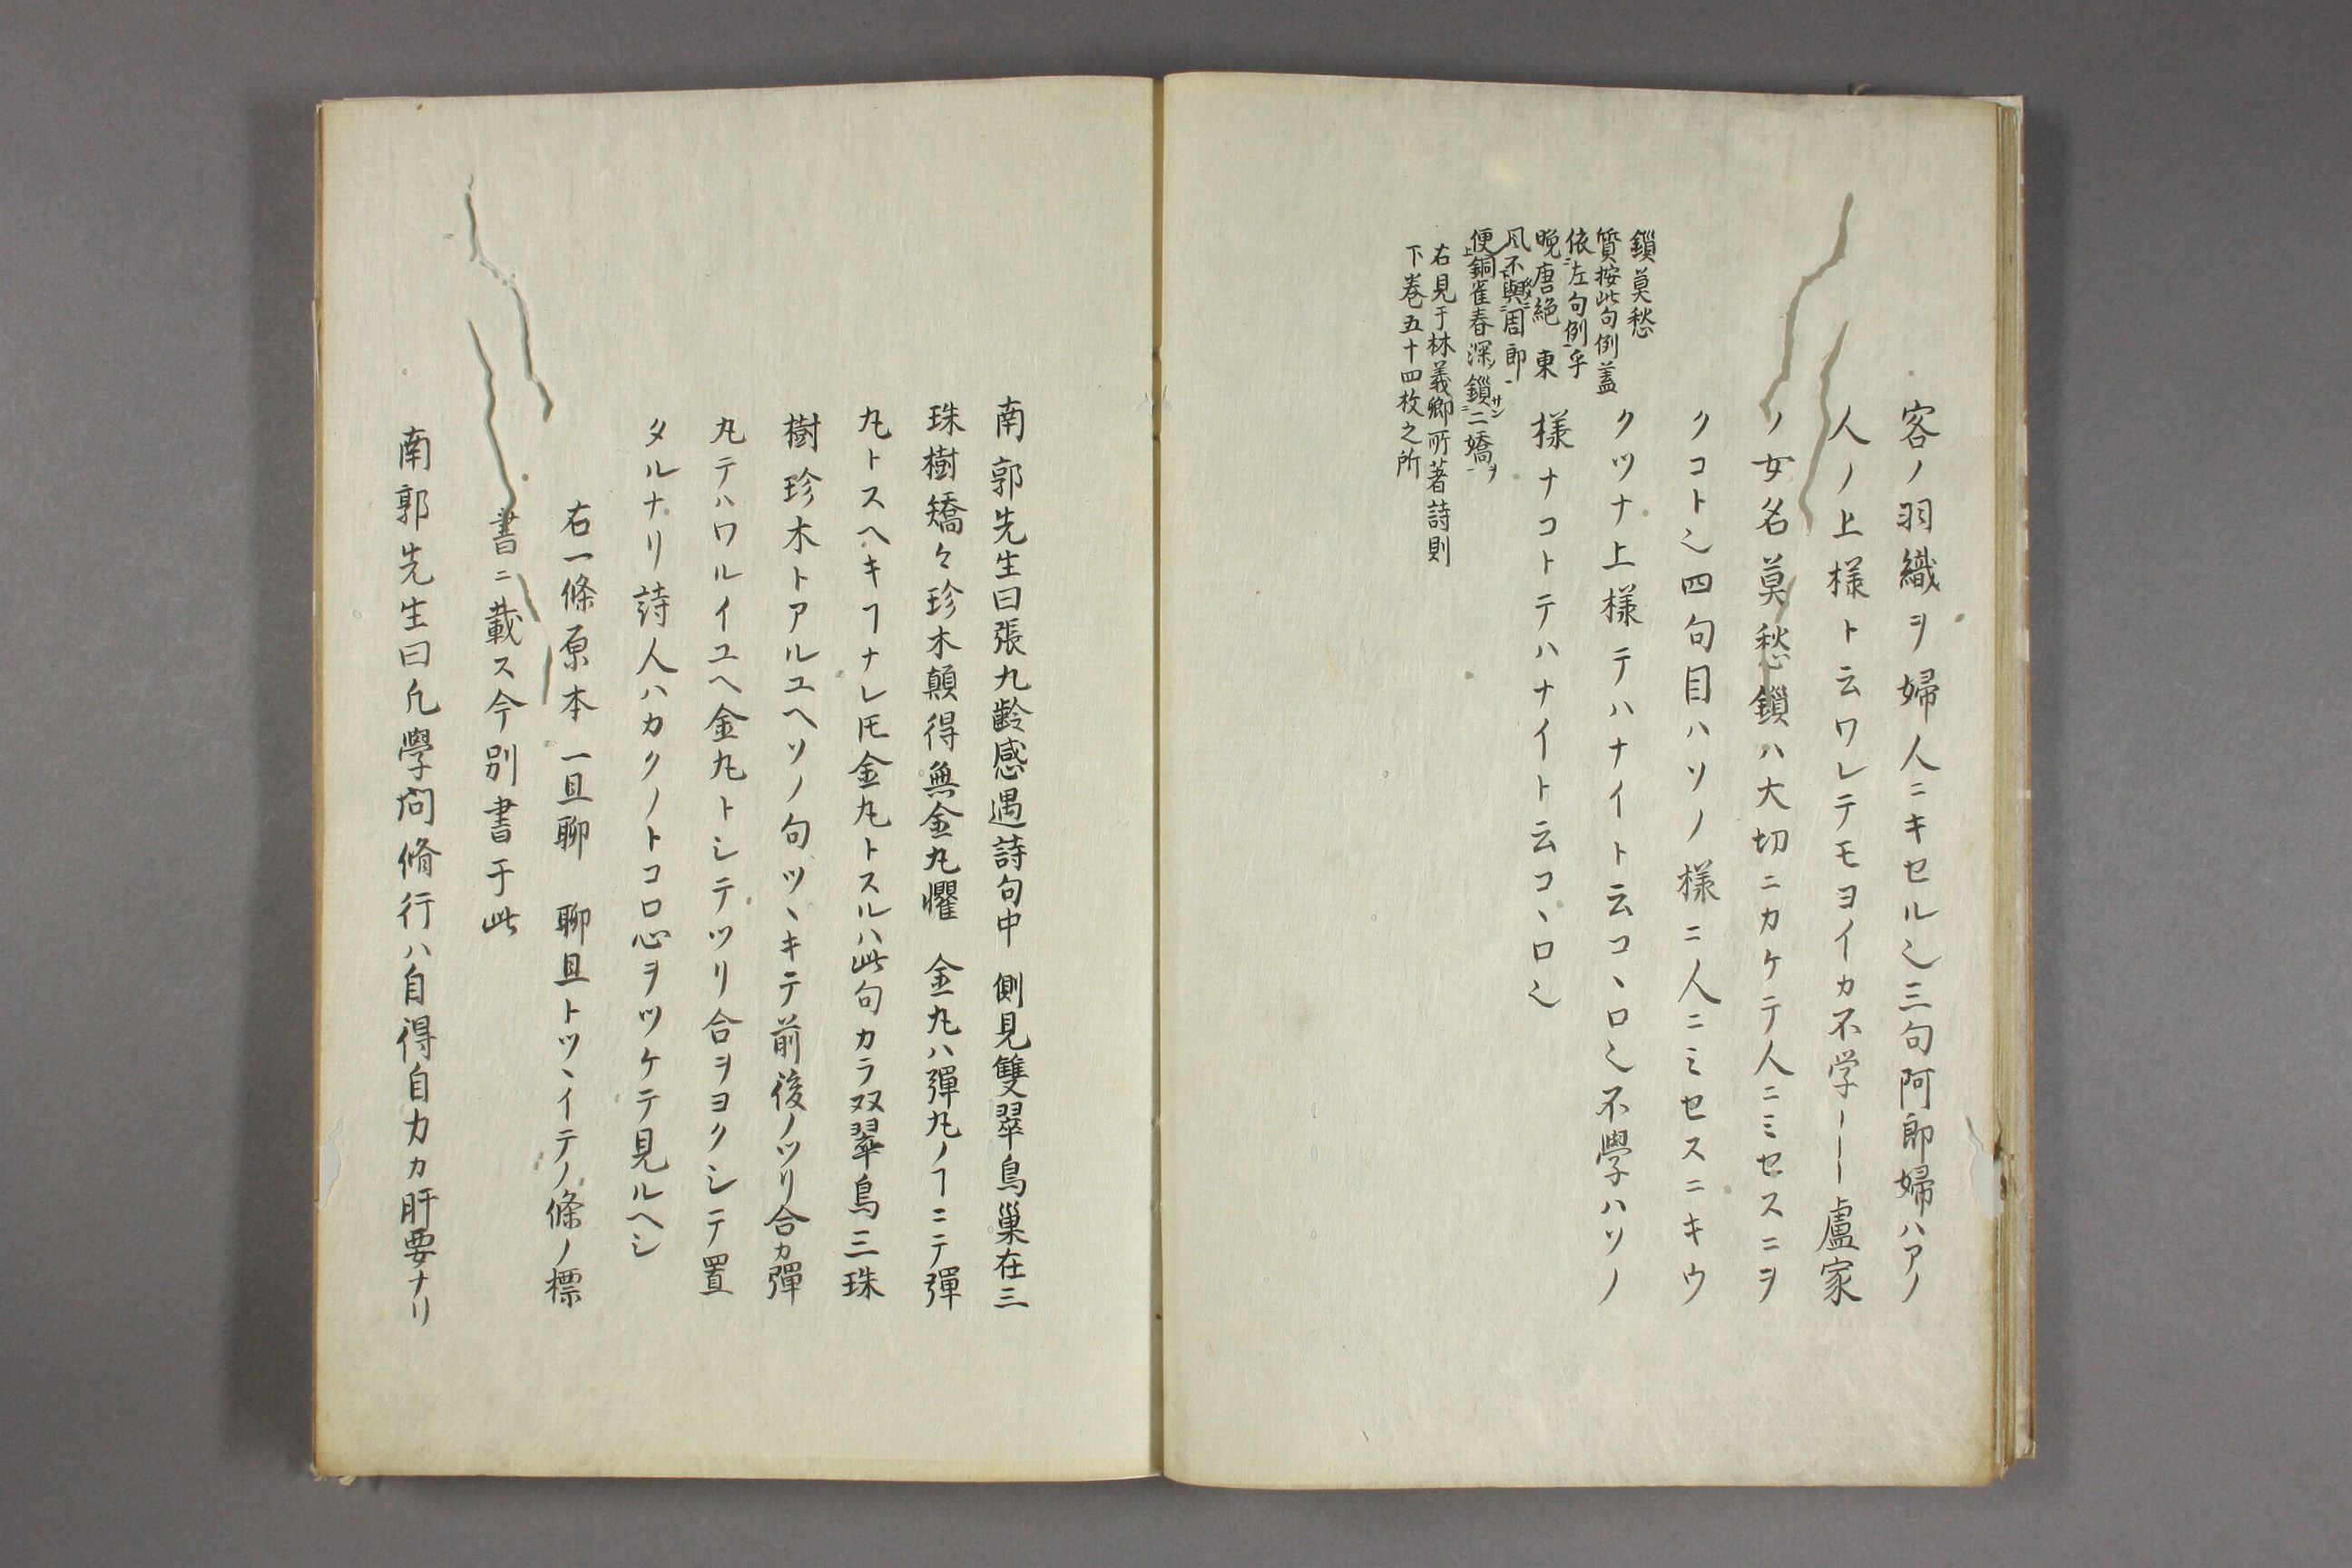 客ノ羽織ヲ婦人ニキセル〻三句阿郎婦ハアノ
人ノ上様ト云ワレテモヨイカ不学｜｜｜盧家
ノ女名莫愁鎻ハ大切ニカケテ人ニミセスニヲ
クコト〻四句目ハソノ様ニ人ニミセスニキウ
クツナ上様テハナイト云コヽロ〻不學ハソノ
様ナコトテハナイト云コヽロ〻
鎻莫愁
質按此句例蓋
依左句例乎
晩唐絶　東
風不與周郎
便銅雀春深鎻二嬌ヲ
右見于林義卿所著詩則
下巻五十四枚之所
南郭先生曰張九齢感遇詩句中　側見雙翠鳥巢在三
珠樹矯々珍木顛得無金丸懼　金丸ハ彈丸ノヿニテ彈
丸トスヘキヿナレ𪜈金丸トスルハ此句カラ双翠鳥三珠
樹珍木トアルユヘソノ句ツヽキテ前後ノツリ合カ彈
丸テハワルイユヘ金丸トシテツリ合ヲヨクシテ置
タルナリ詩人ハカクノトコロ心ヲツケテ見ルヘシ
右一條原本一且聊　聊且トツヽイテノ條ノ標
書ニ載ス今別書于此
南郭先生曰凢學問脩行ハ自得自力カ肝要ナリ